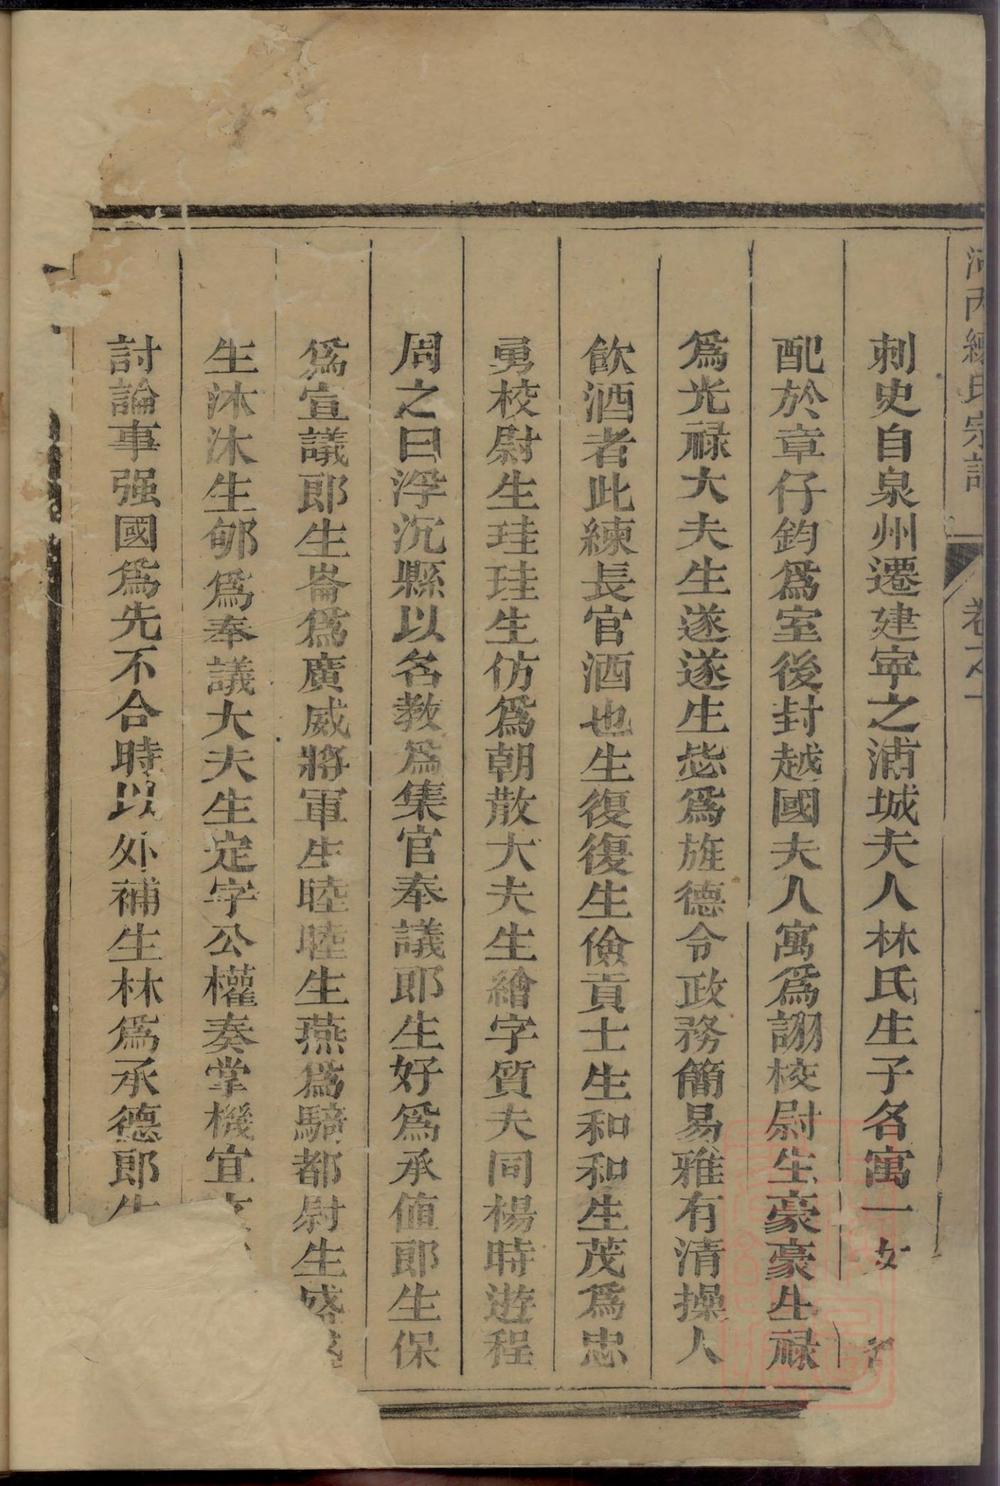 河內練氏宗譜 卷之一
刺史自泉州遷建寧之浦城夫人林氏生子名寓一女
配於章仔鈞爲室後封越國夫人寓爲詡校尉生豪豪生祿
爲光祿大夫生遂遂生毖爲旌德令政務簡易雅有清操人
飲酒者此練長官酒也生復復生儉貢士生和和生茂爲忠
勇校尉生珪珪生仿爲朝散大夫生繪字質夫同楊時遊程
周之曰浮沉縣以名教爲集官奉議郎生好爲承値郎生保
爲宣議郎生崙爲廣威將軍生睦睦生燕爲騎都尉生盛
生沐沐生郇爲奉議大夫生定字公權奏掌機宜文
討論事强國爲先不合時以外補生林爲承德郎生